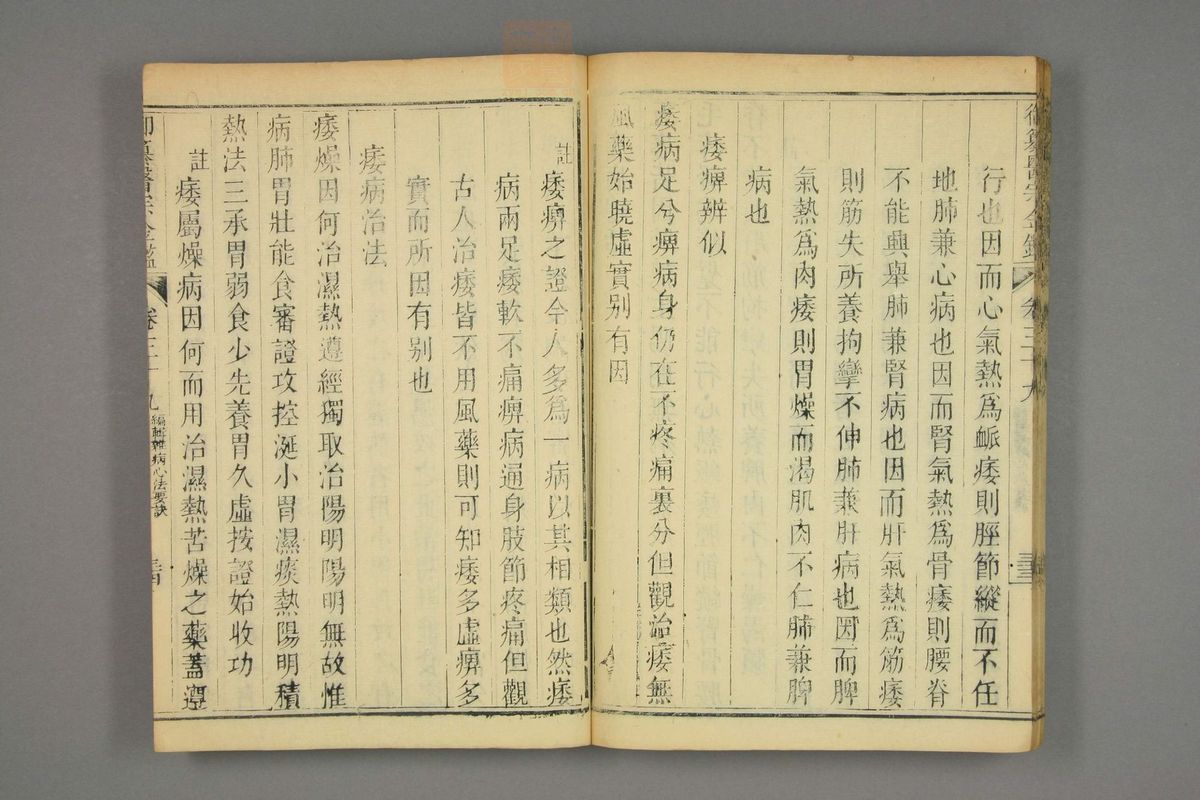 御纂醫宗金鑑 卷三十九
行也因而心氣熱爲䘑痿則脛節縱而不任
地肺兼心病也因而腎氣熱爲骨痿則腰脊
不能興舉肺兼腎病也因而肝氣熱爲筋痿
則筋失所養拘攣不伸肺兼肝病也因而脾
氣熱爲肉痿則胃燥而渴肌肉不仁肺兼脾
病也
痿痹辨似
痿病足兮痹病身仍在不疼痛裏分但觀治痿無
風藥始曉虛實别有因
註痿痹之證今人多爲一病以其相類也然痿
病兩足痿軟不痛痹病通身肢節疼痛但觀
古人治痿皆不用風藥則可知痿多虛痹多
實而所因有别也
痿病治法
痿燥因何治濕熱遵經獨取治陽明陽明無故惟
病肺胃壯能食審證攻控涎小胃濕痰熱陽明積
熱法三承胃弱食少先養胃久虛按證始收功
註痿屬燥病因何而用治濕熱苦燥之藥蓋遵
御纂醫宗金鑑 卷三十九 編輯雜病心法要訣